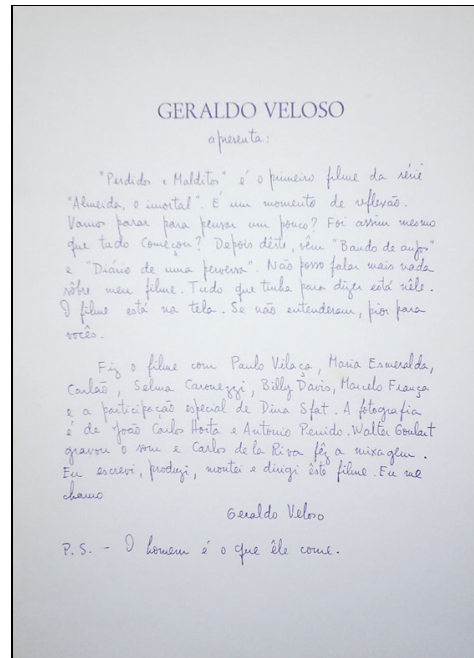 GERALDO VELOSO
apresenta:
"Perdidos e Malditos" é o primeiro filme da série
"Almeida, o imortal". É um momento de reflexão.
Vamos parar para pensar um pouco? Foi assim mesmo
que tudo começou? Depois dêste, vêm "Bando de anjos"
e "Diário de uma perversa". Não posso falar mais nada
sôbre meu filme. Tudo que tinha para dizer está nêle.
O filme está na tela. Se não entenderam, pior para
vocês.
Fiz o filme com Paulo Vilaça, Maria Esmeralda,
Carlão, Selma Caronezzi, Billy Davis, Marcelo França
e a participação especial de Dina Sfat. A fotografia
é de João Carlos Horta e Antonio Penido. Walter Goulart
gravou o som e Carlos de la Riva fêz a mixagem.
Eu escrevi, produzi, montei e dirigi êste filme. Eu me
chamo
Geraldo Veloso
P.S. - O homem é o que êle come.